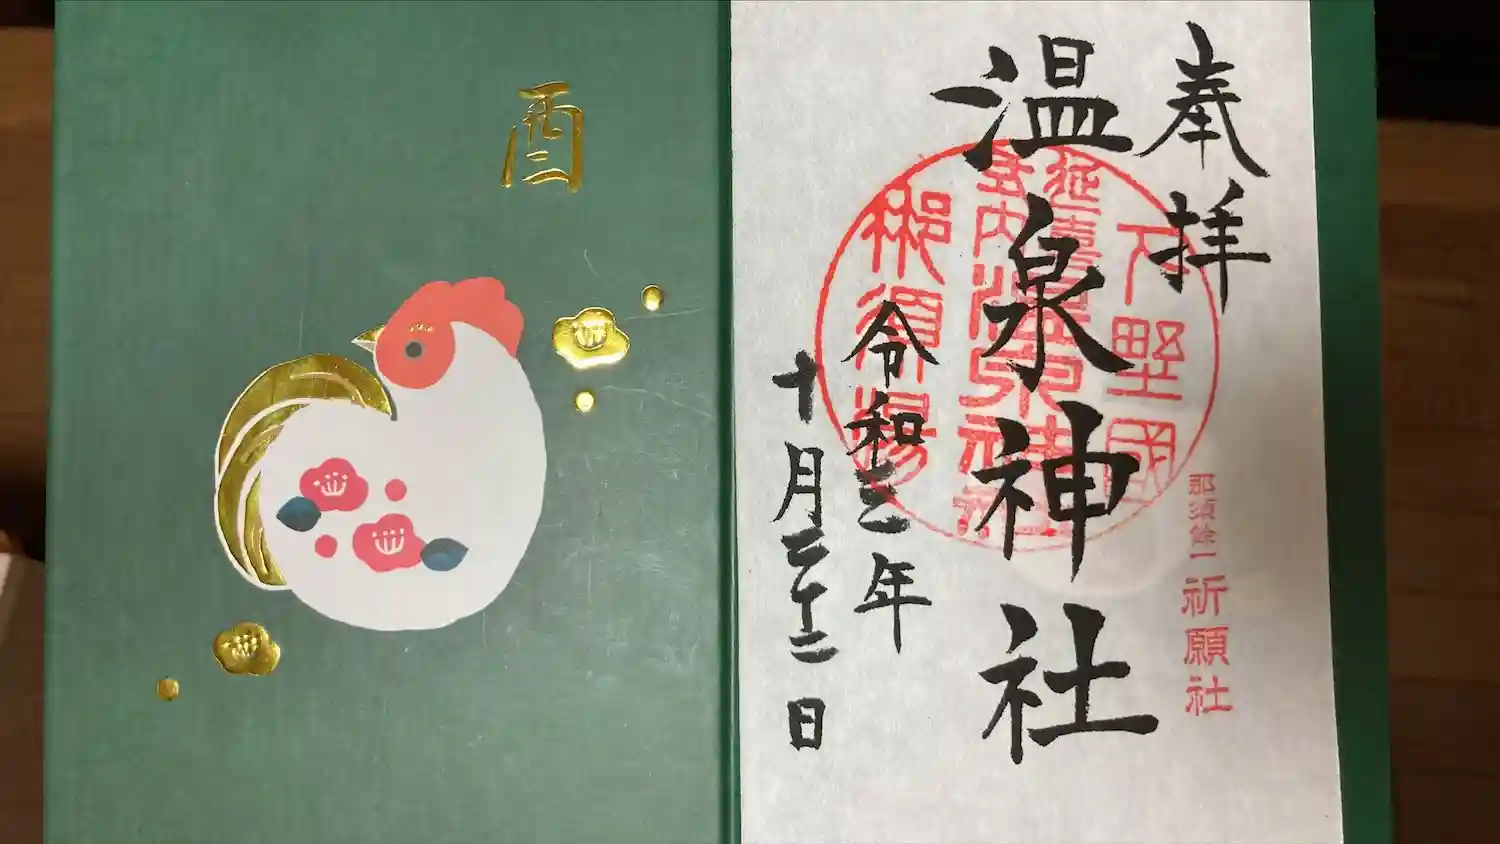 酉
奉拝
那須餘一
祈願社
温泉神社
下野國
延喜
式内
温泉神社
那須湯
令和三年
十月二十二日